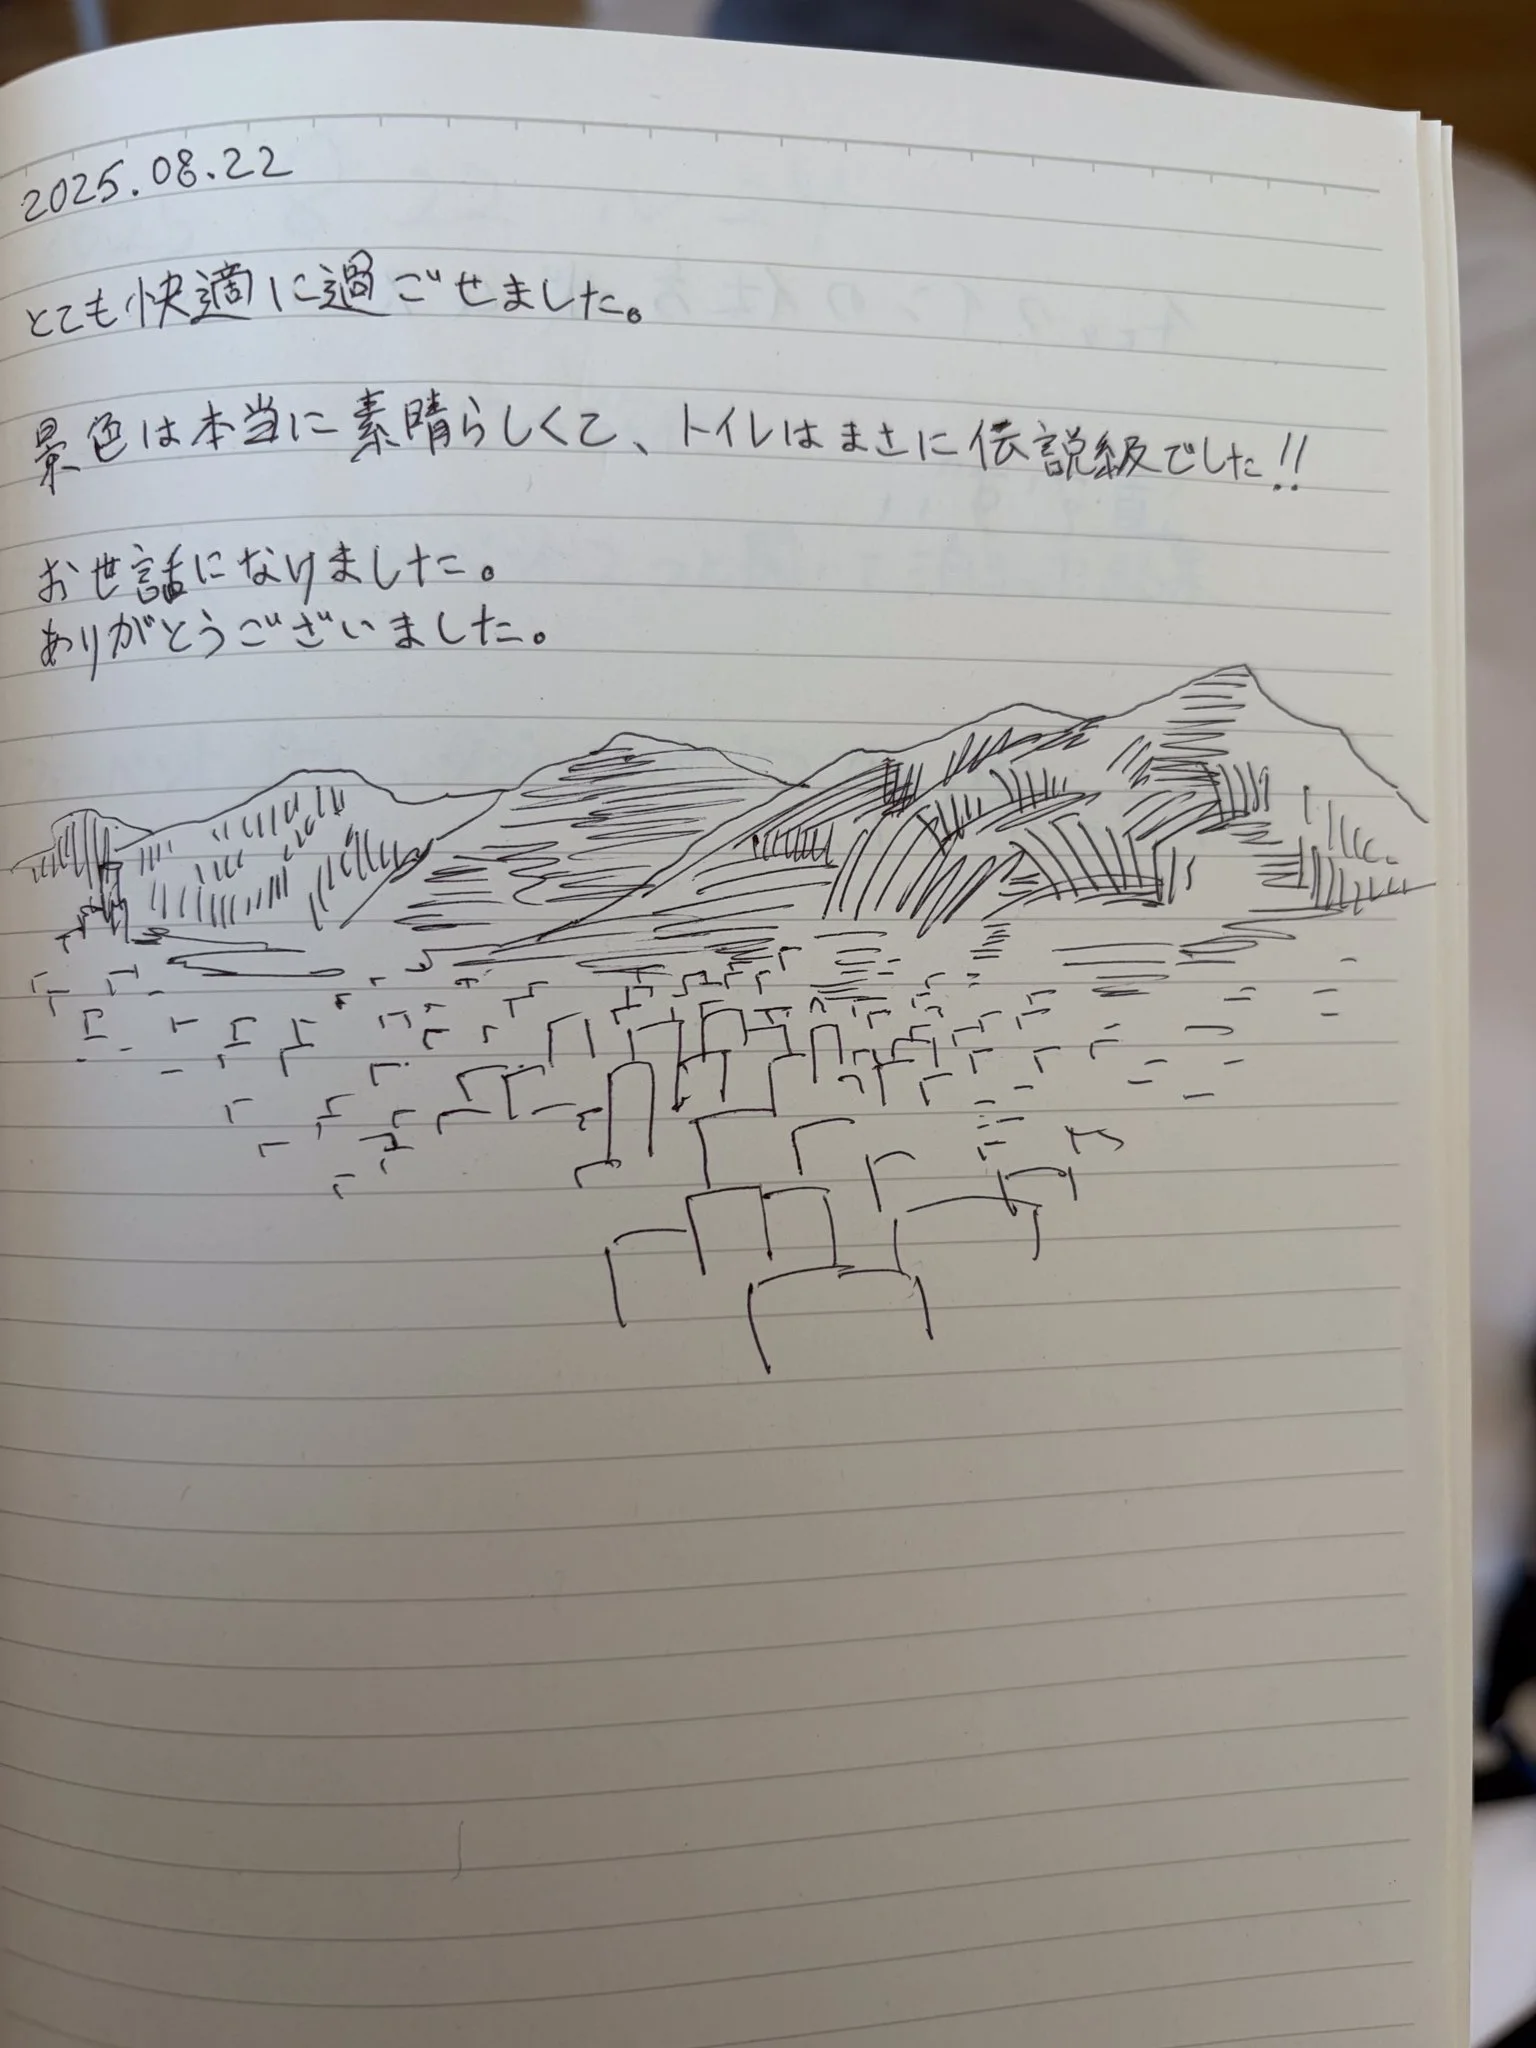 2025.08.22
とても快適に過ごせました。
景色は本当に素晴らしくて、トイレはまさに伝説級でした!!
お世話になけました。
ありがとうございました。